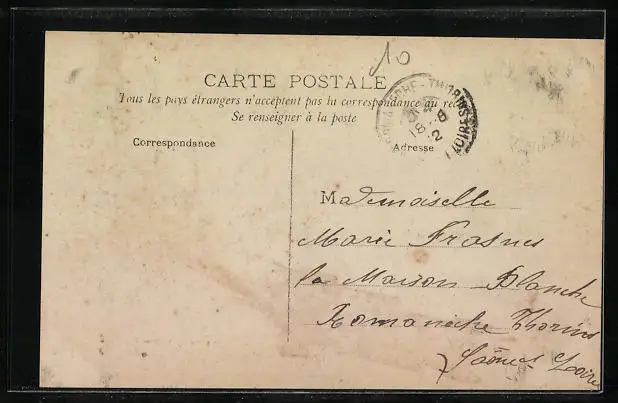 10
CARTE POSTALE
Tous les pays étrangers n'acceptent pas la correspondance au rec
Se renseigner à la poste
THORINS
18 - 8
12
LOIRE)
Correspondance
Adresse
Mademoiselle
Marie
la Maison Blanche
Romanèche Thorins
Saône Loire